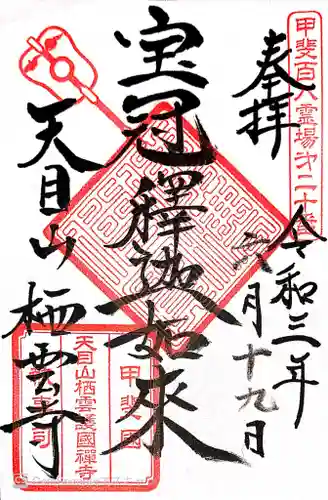 甲斐百八霊場第二十番
奉拝
令和三年
六月十九日
宝冠釋迦如來
天目山
栖雲寺
甲斐國
天目山栖雲護國禪寺